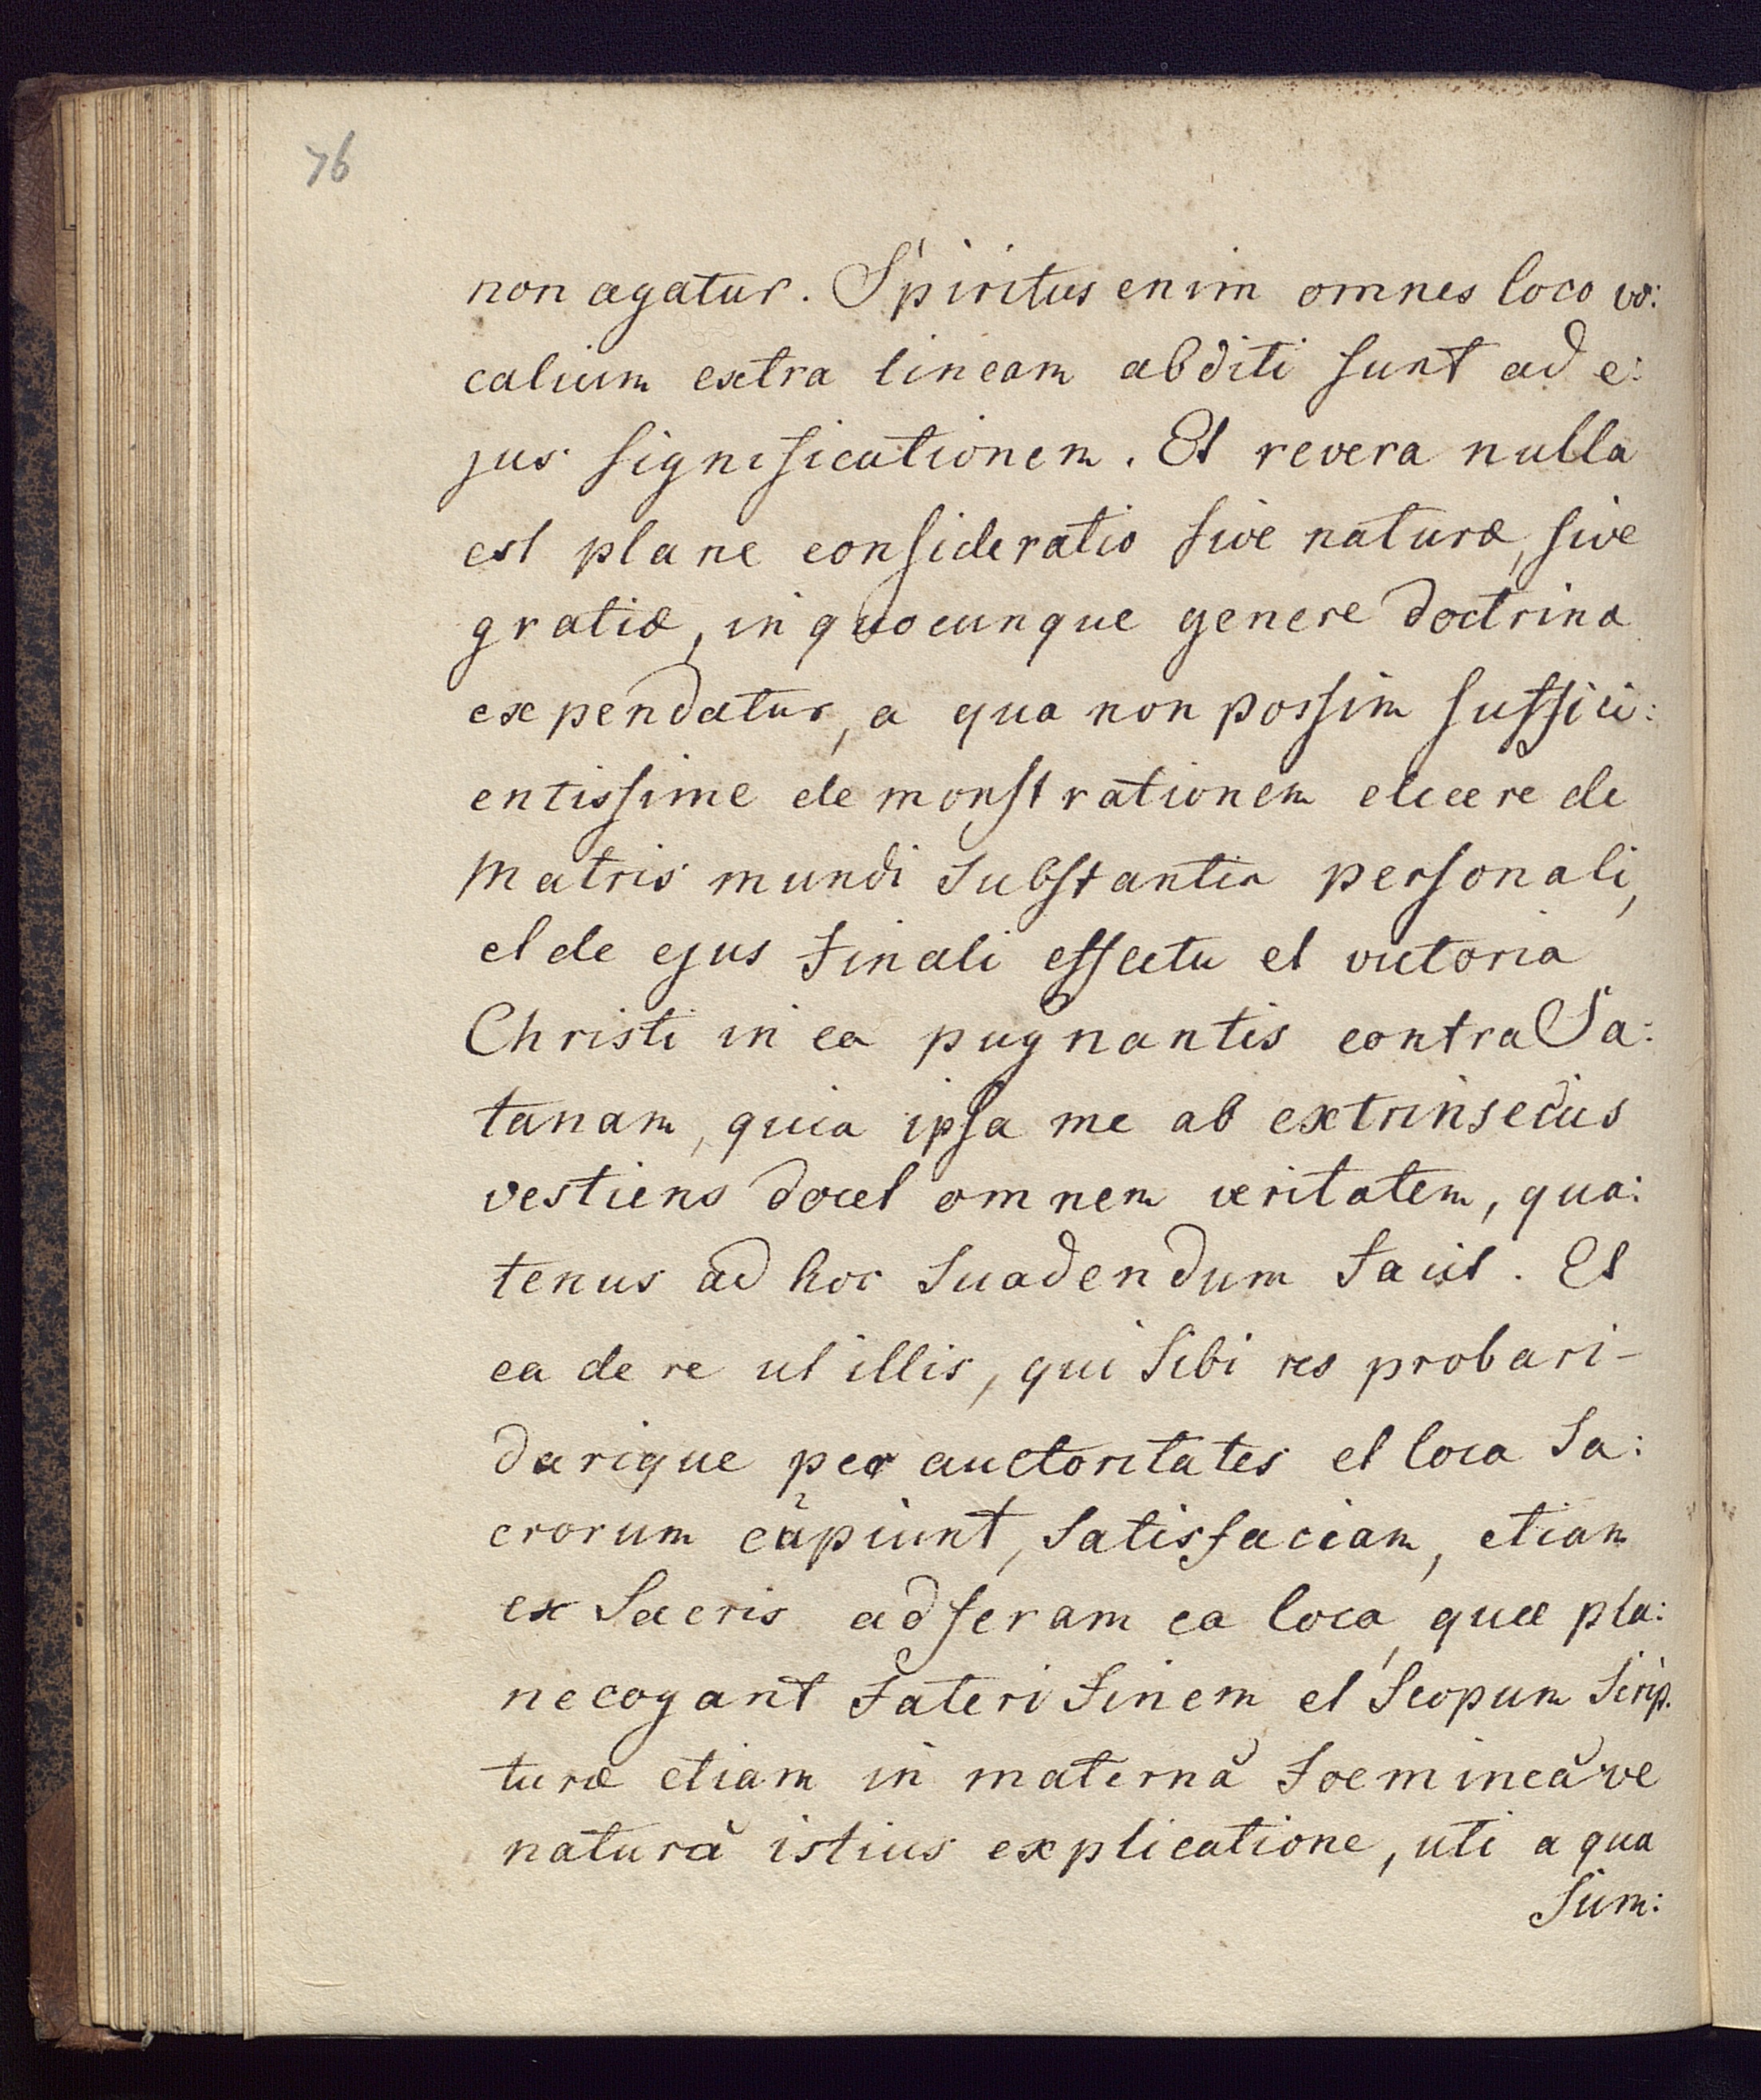 76
non agatur. Spiritus enim omnes loco vo:
calium extra lineam abditi sunt ad e:
jus significationem. Et revera nulla
est plane consideratio sive naturæ, sive
gratiæ, in quocunque genere doctrina
expendatur, a qua non possim suffici:
entissime demonstrationem elicere de
Matris mundi substantia personali,
et de ejus finali effectu et victoria
Christi in ea pugnantis contra Sa:
tanam, quia ipsa me ab extrinsecus
vestiens docet omnem veritatem, qua:
tenus ad hoc suadendum facit. Et
ea de re ut illis, qui sibi res probari-
darique per auctoritates et loca Sa:
crorum cupiunt, satisfaciam, etiam
ex Sacris adferam ea loca, quæ pla:
ne cogant fateri finem et scopum Scrip.
turæ etiam in maternâ foemineâve
naturâ istius explicatione, uti a qua
sum: